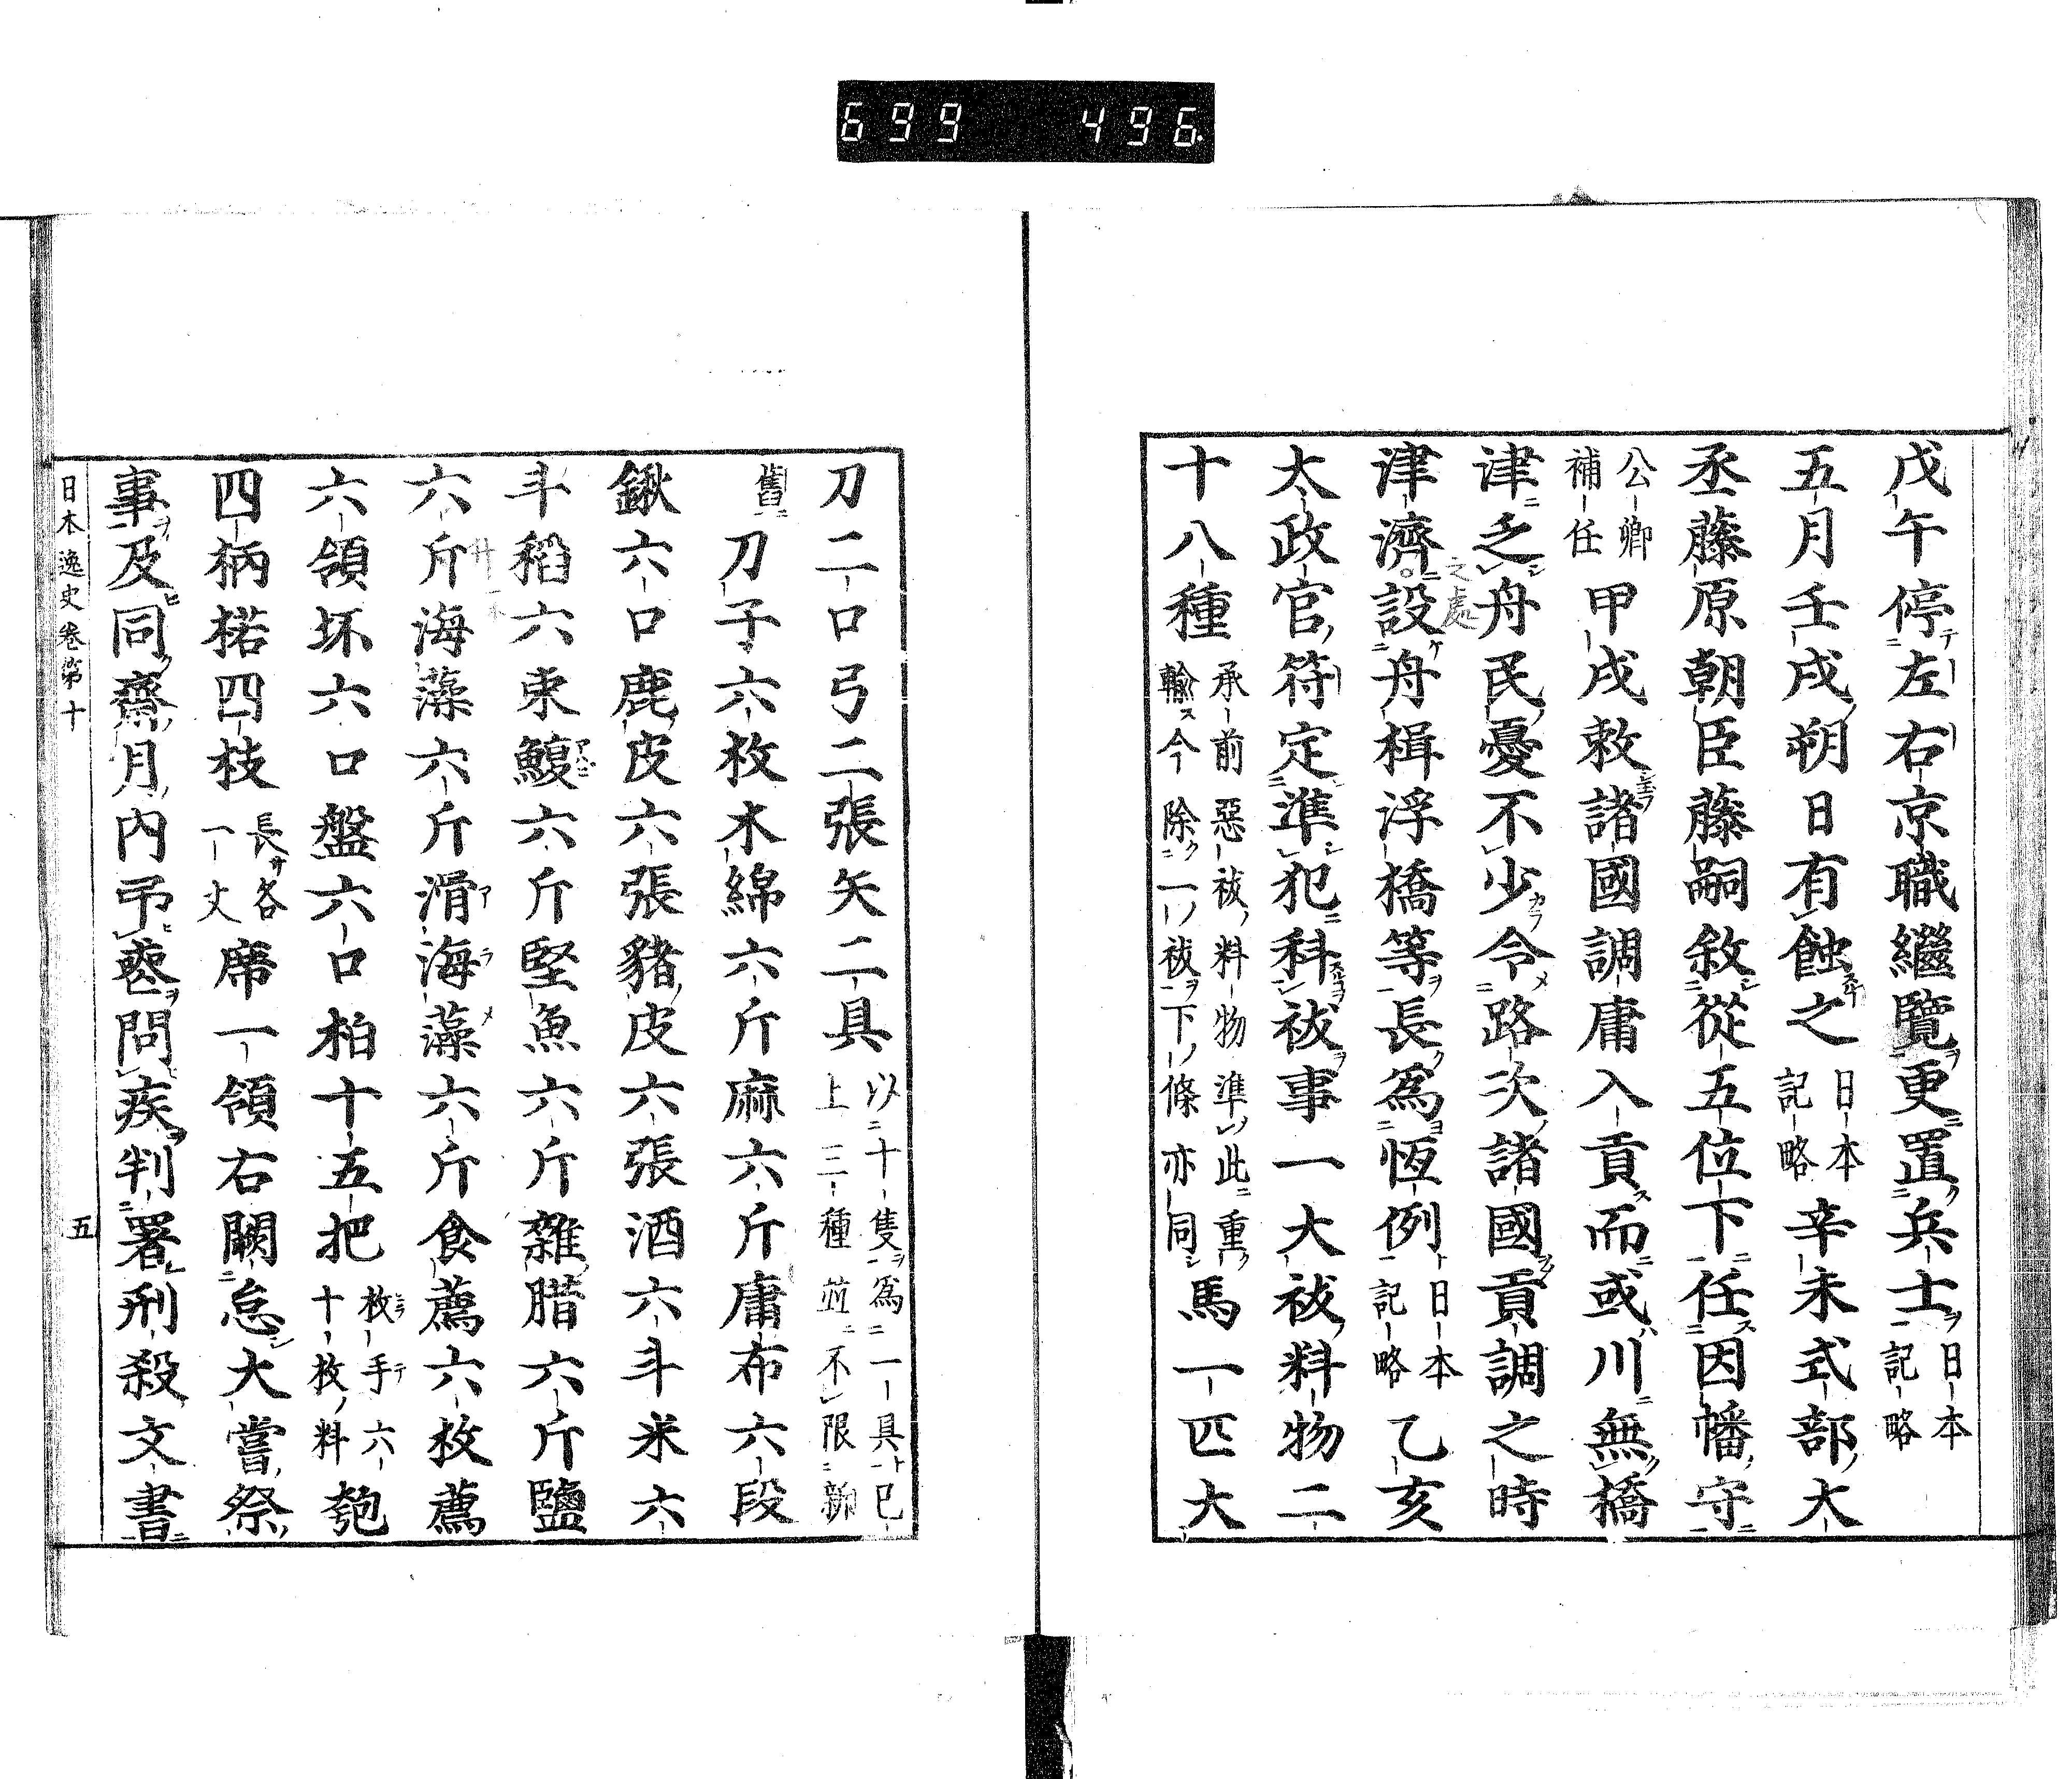 699 496
戊午停左右京職繼覽更置兵士日本記略
五月壬戌朔日有蝕之日本記略辛未式部大
丞藤原朝臣藤嗣敘從五位下任因幡守
公卿補任甲戌敕諸國調庸入貢而或川無橋
津乏舟民憂不少令路次諸國貢調之時
津濟設舟楫浮橋等長爲恆例日本記略乙亥
之處
太政官符定準犯科祓事一大祓料物二
十八種承前惡祓料物準此重輸今除一祓下條亦同馬一匹大
刀二口弓二張矢二具以十隻爲一具已上三種並不限新
舊刀子六枚木綿六斤麻六斤庸布六段
鍬六口鹿皮六張豬皮六張酒六斗米六
斗稻六束鰒六斤堅魚六斤雜腊六斤鹽
六斤海藻六斤滑海藻六斤食薦六枚薦
六領坏六口盤六口柏十五把枚手六十枚料匏
四柄楉四枝長各一丈席一領右闕怠大嘗祭
事及同齋月內弔喪問疾判署刑殺文書
日本逸史卷第十 五